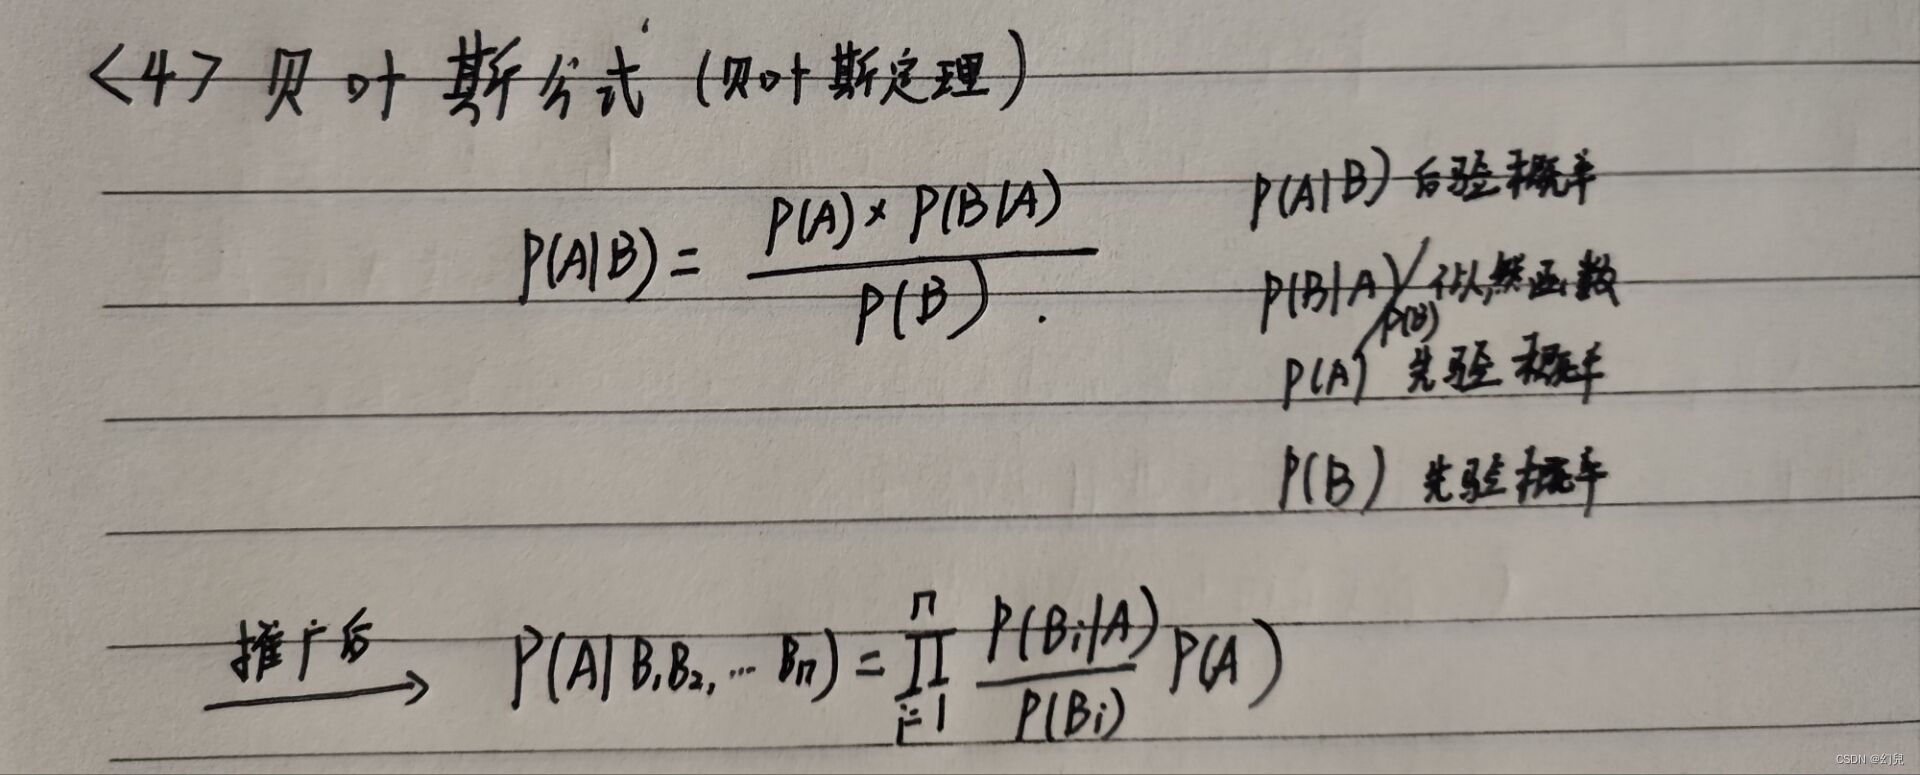 <4> 贝叶斯公式 (贝叶斯定理)
P(A|B) = P(A) × P(B|A) / P(B) .
P(A|B) 后验概率
P(B|A) / P(B) 似然函数
P(A) 先验概率
P(B) 先验概率
推广后 → P(A| B₁B₂, ... Bn) = ∏ⁿᵢ₌₁ P(Bi|A) / P(Bi) P(A)
CSDN @幻兒